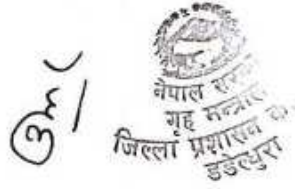 नेपाल सरकार
गृह मन्त्रालय
जिल्ला प्रशासन का.
डडेल्धुरा